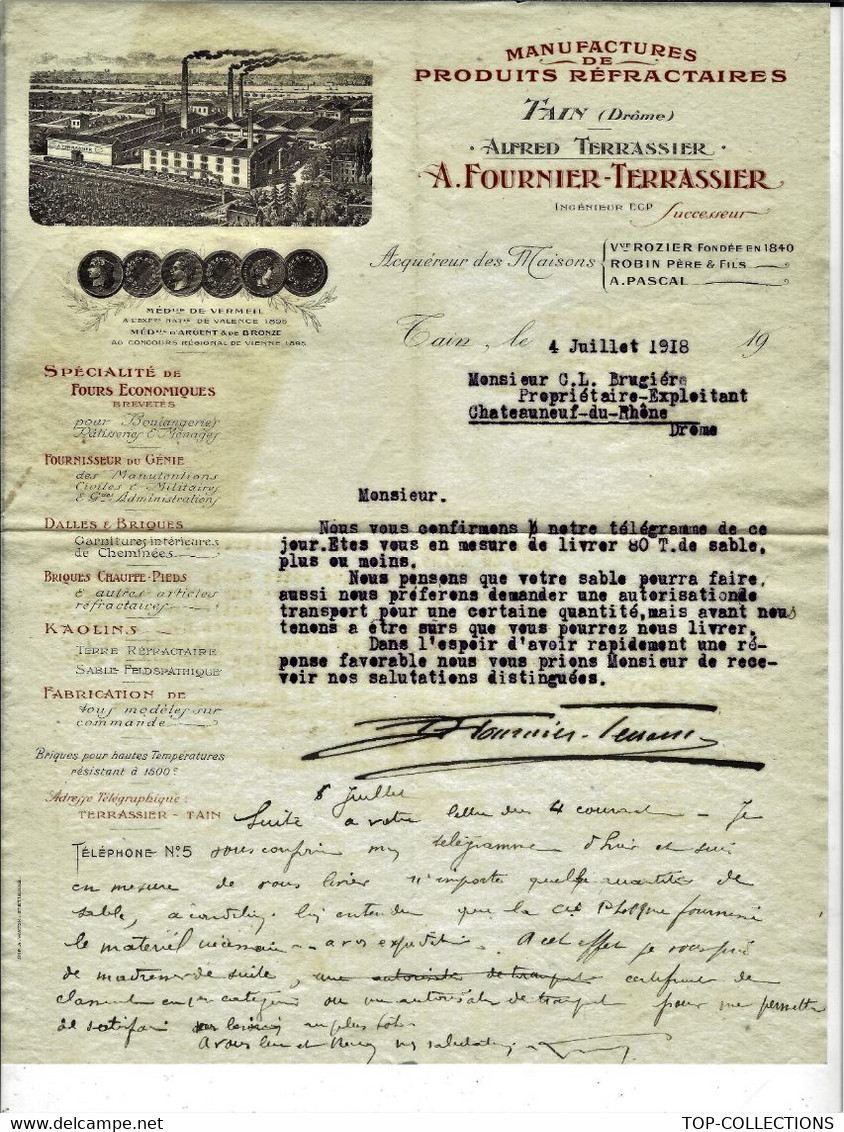 MANUFACTURES
DE
PRODUITS RÉFRACTAIRES
TAIN (Drôme)
ALFRED TERRASSIER
A. FOURNIER-TERRASSIER
INGÉNIEUR E.C.P. Successeur
Acquéreur des Maisons
Vve ROZIER FONDÉE EN 1840
ROBIN PÈRE & FILS
A. PASCAL
MÉDlle DE VERMEIL
A L'EXPon NATle DE VALENCE 1895
MÉDlles D'ARGENT & DE BRONZE
AU CONCOURS RÉGIONAL DE VIENNE 1895
Tain, le 4 Juillet 1918 19
Monsieur C.L. Brugiére
Propriétaire-Exploitant
Chateauneuf-du-Rhône
Drome
SPÉCIALITÉ DE
FOURS ECONOMIQUES
BREVETÉS
pour Boulangeries
Pâtisseries & Ménages
FOURNISSEUR DU GÉNIE
des Manutentions
Civiles & Militaires
& Gdes Administrations
DALLES & BRIQUES
Garnitures intérieures
de Cheminées
BRIQUES CHAUFFE-PIEDS
& autres articles
réfractaires
KAOLINS
TERRE RÉFRACTAIRE
SABLE FELDSPATHIQUE
FABRICATION DE
tous modèles sur
commande
Briques pour hautes Températures
résistant à 1800°
Adresse Télégraphique:
TERRASSIER - TAIN
TÉLÉPHONE N°5
Monsieur.
Nous vous confirmons notre télégramme de ce
jour.Etes vous en mesure de livrer 80 T.de sable,
plus ou moins.
Nous pensons que votre sable pourra faire,
aussi nous préferons demander une autorisationde
transport pour une certaine quantité,mais avant nous
tenons a être surs que vous pourrez nous livrer.
Dans l'espoir d'avoir rapidement une ré-
ponse favorable nous vous prions Monsieur de rece-
voir nos salutations distinguées.
A Fournier-Terrassier
8 Juillet
Suite a votre lettre du 4 courant - Je
vous confirme mon télégramme d'hier et suis
en mesure de vous livrer n'importe quelle quantité de
sable, a condition bien entendu que la Cie P.L.M. que fournira
le matériel nécessaire a vos expéditions. A cet effet je vous prie
de m'adresser de suite, une autorisation de transport certificat de
classement en 1er categorie ou une autorisation de transport pour me permettre
de satisfaire au plus tôt.
A vous lire et Recevez mes salutations
TOP-COLLECTIONS